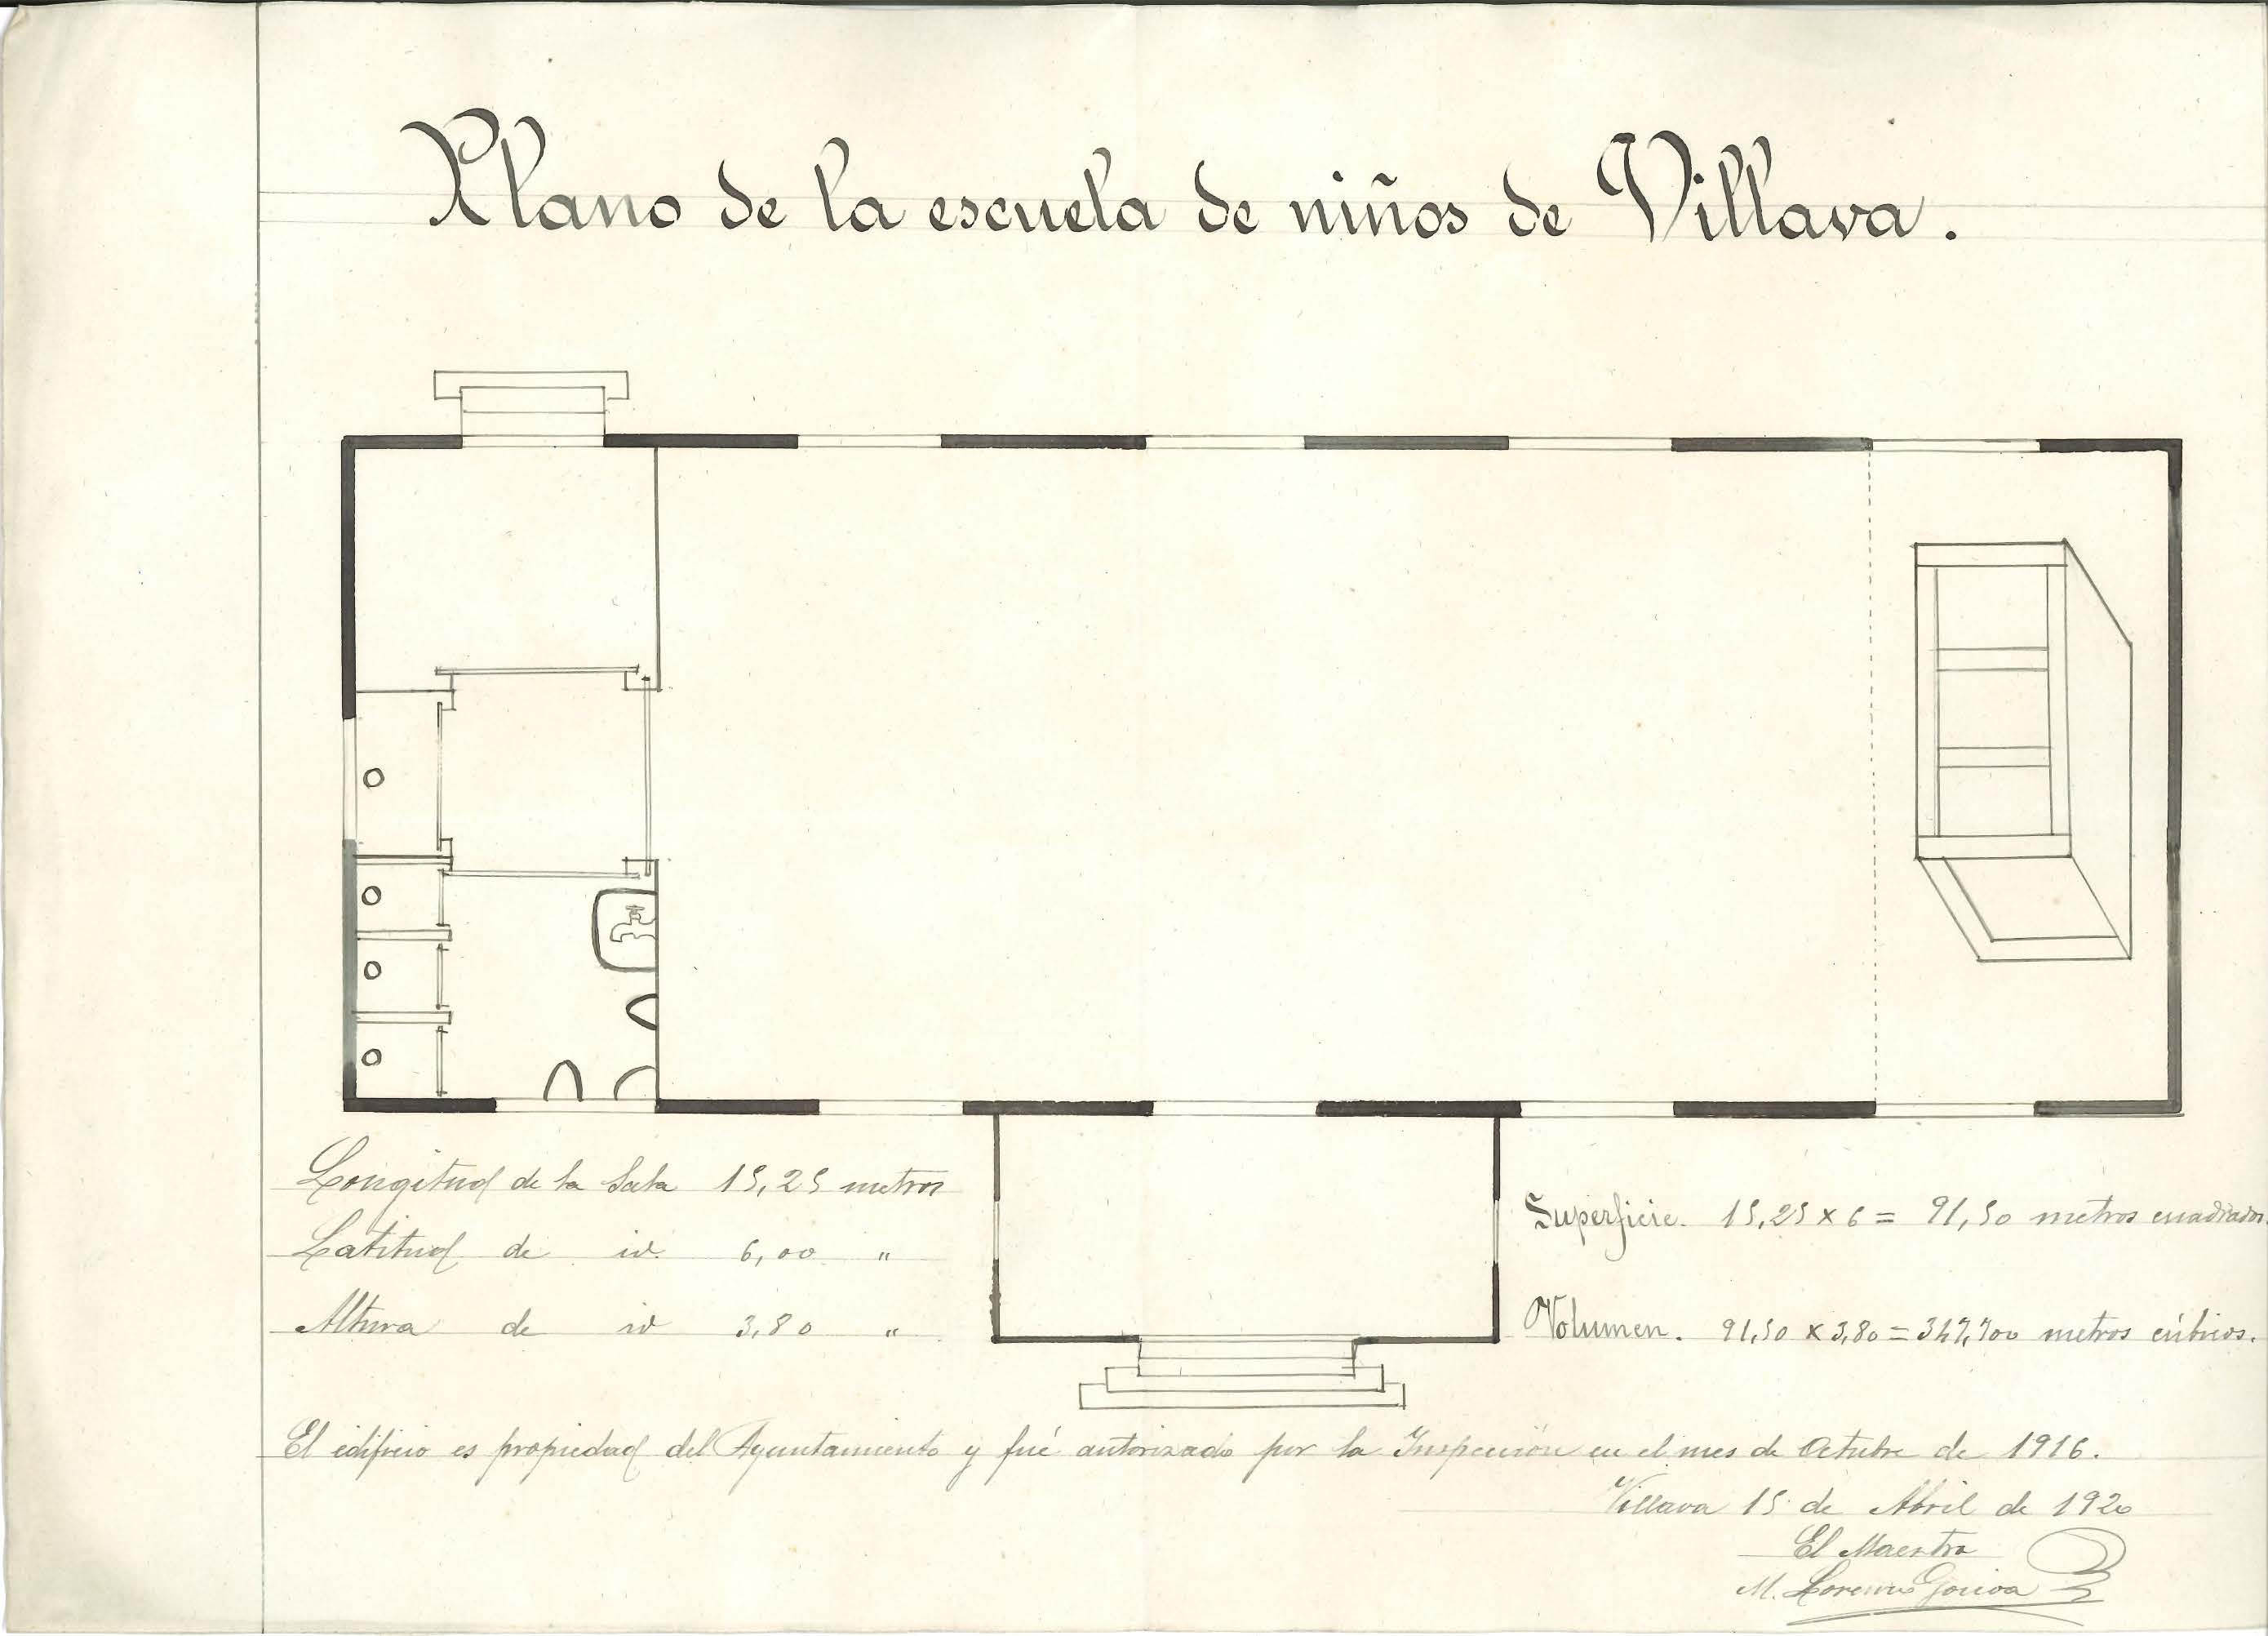 Plano de la escuela de niños de Villava.
Longitud de la Sala 15,25 metros
Latitud de id. 6,00 "
Altura de id 3,80 "
Superficie. 15,25 x 6 = 91,50 metros cuadrados.
Volumen. 91,50 x 3,80 = 347,700 metros cúbicos.
El edificio es propiedad del Ayuntamiento y fué autorizado por la Inspección en el mes de Octubre de 1916.
Villava 15 de Abril de 1920
El Maestro
M. Lorenzo